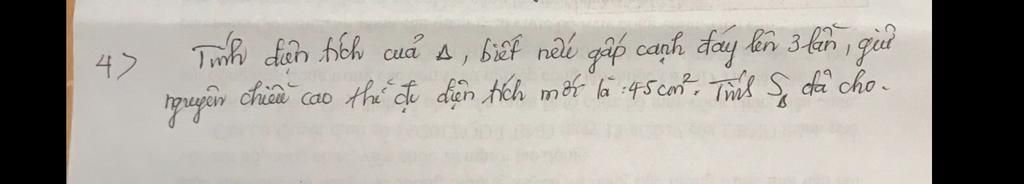 4> Tính diện tích cuả Δ, biết nếu gấp cạnh đáy lên 3 lần, giữ
nguyên chiều cao thì đc diện tích mới là :45cm². Tính S△ đã cho.